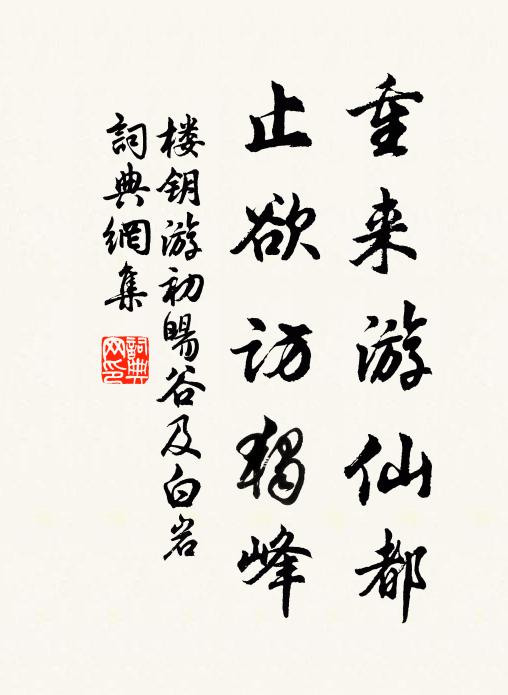 重来游仙都
止欲访独峰
楼钥游初暘谷及白岩
詞典網集
詞典
网印